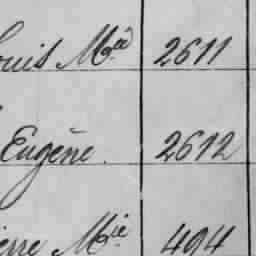 ouis Mel 2611
Eugène. 2612
ierre Mie 494